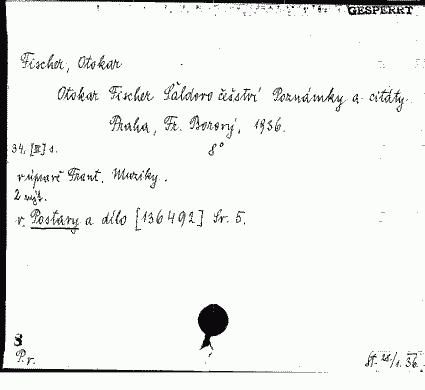 GESPERRT
Fischer, Otokar
Otokar Fischer Šaldovo češství Poznámky a citáty
Praha, Fr. Borový, 1936.
34, [III] s. 8°
v úpravě Frant. Muziky.
2 výt.
v. Postavy a dílo [136492] Sv. 5.
8
P. r.
st. 28/1. 36.